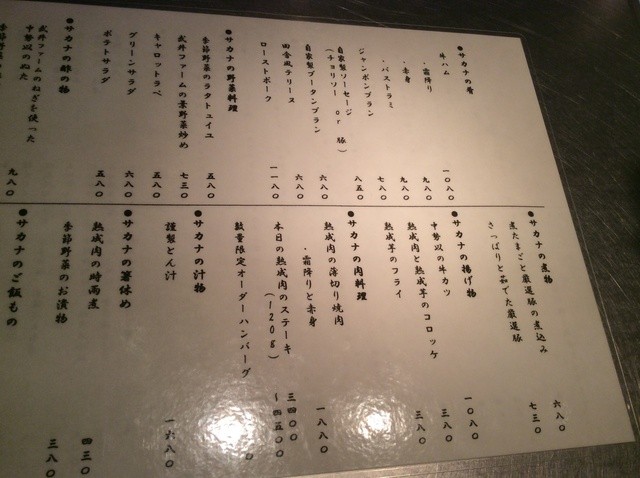 ●サカナの肴
牛ハム
・霜降り
一〇八〇
・赤身
九八〇
・パストラミ
九八〇
ジャンボンブラン
七八〇
自家製ソーセージ
(チョリソー or 豚)
八五〇
自家製ブータンブラン
六八〇
田舎風テリーヌ
六八〇
ローストポーク
一一八〇
●サカナの野菜料理
季節野菜のラタトゥイユ
五八〇
武井ファームの葉野菜炒め
七三〇
キャロットラペ
五八〇
グリーンサラダ
六八〇
ポテトサラダ
五八〇
●サカナの酢の物
武井ファームのねぎを使った
中勢以のぬた
九八〇
●サカナの煮物
煮たまごと厳選豚の煮込み
六八〇
さっぱりと茹でた厳選豚
七三〇
●サカナの揚げ物
中勢以の牛カツ
一〇八〇
熟成肉と熟成芋のコロッケ
三八〇
熟成芋のフライ
三八〇
●サカナの肉料理
熟成肉の薄切り焼肉
・霜降りと赤身
一八八〇
本日の熟成肉のステーキ
(120g)
三四〇〇
〜四五〇〇
数量限定オーダーハンバーグ
●サカナの汁物
謹製とん汁
一六八〇
●サカナの箸休め
熟成肉の時雨煮
四三〇
季節野菜のお漬物
三八〇
●サカナのご飯もの